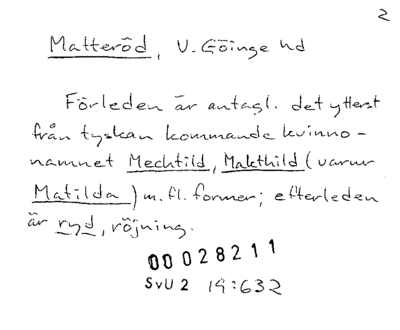 2
Matteröd, V. Göinge hd
Förleden är antagl. det ytterst
från tyskan kommande kvinno-
namnet Mechtild, Makthild (varur
Matilda) m.fl. former; efterleden
är ryd, röjning.
00028211
SvU 2 19:632